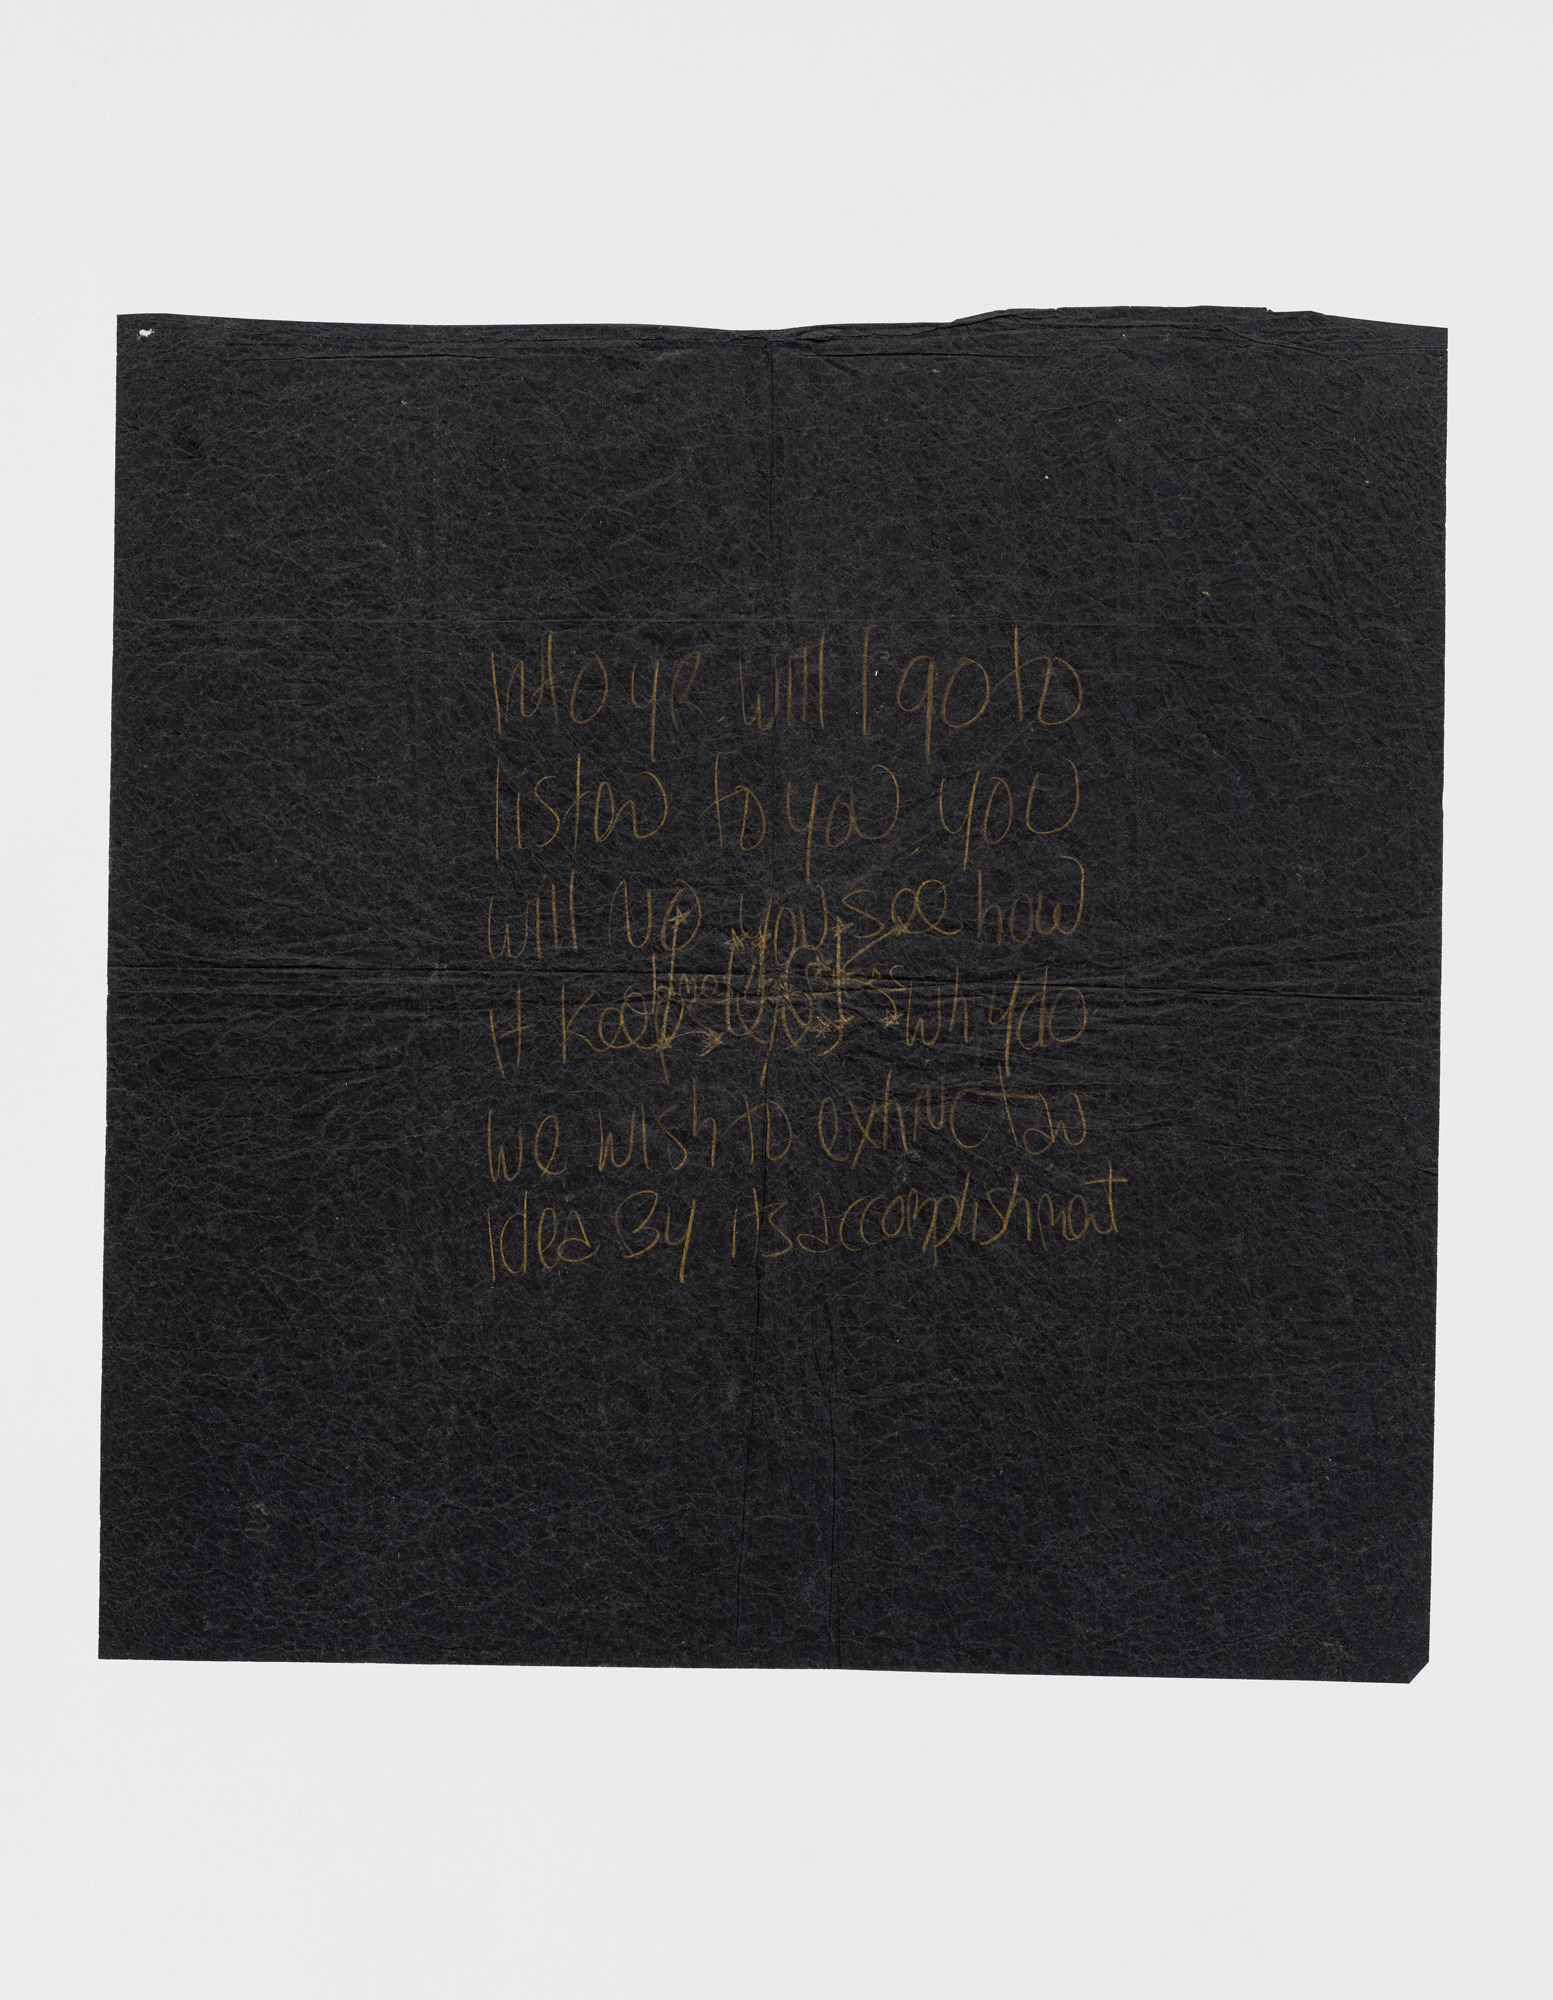 into yR. will I go to
listen to you you
will No you see how
it keeps why do
we wish to extinct an
idea By its accomplishment